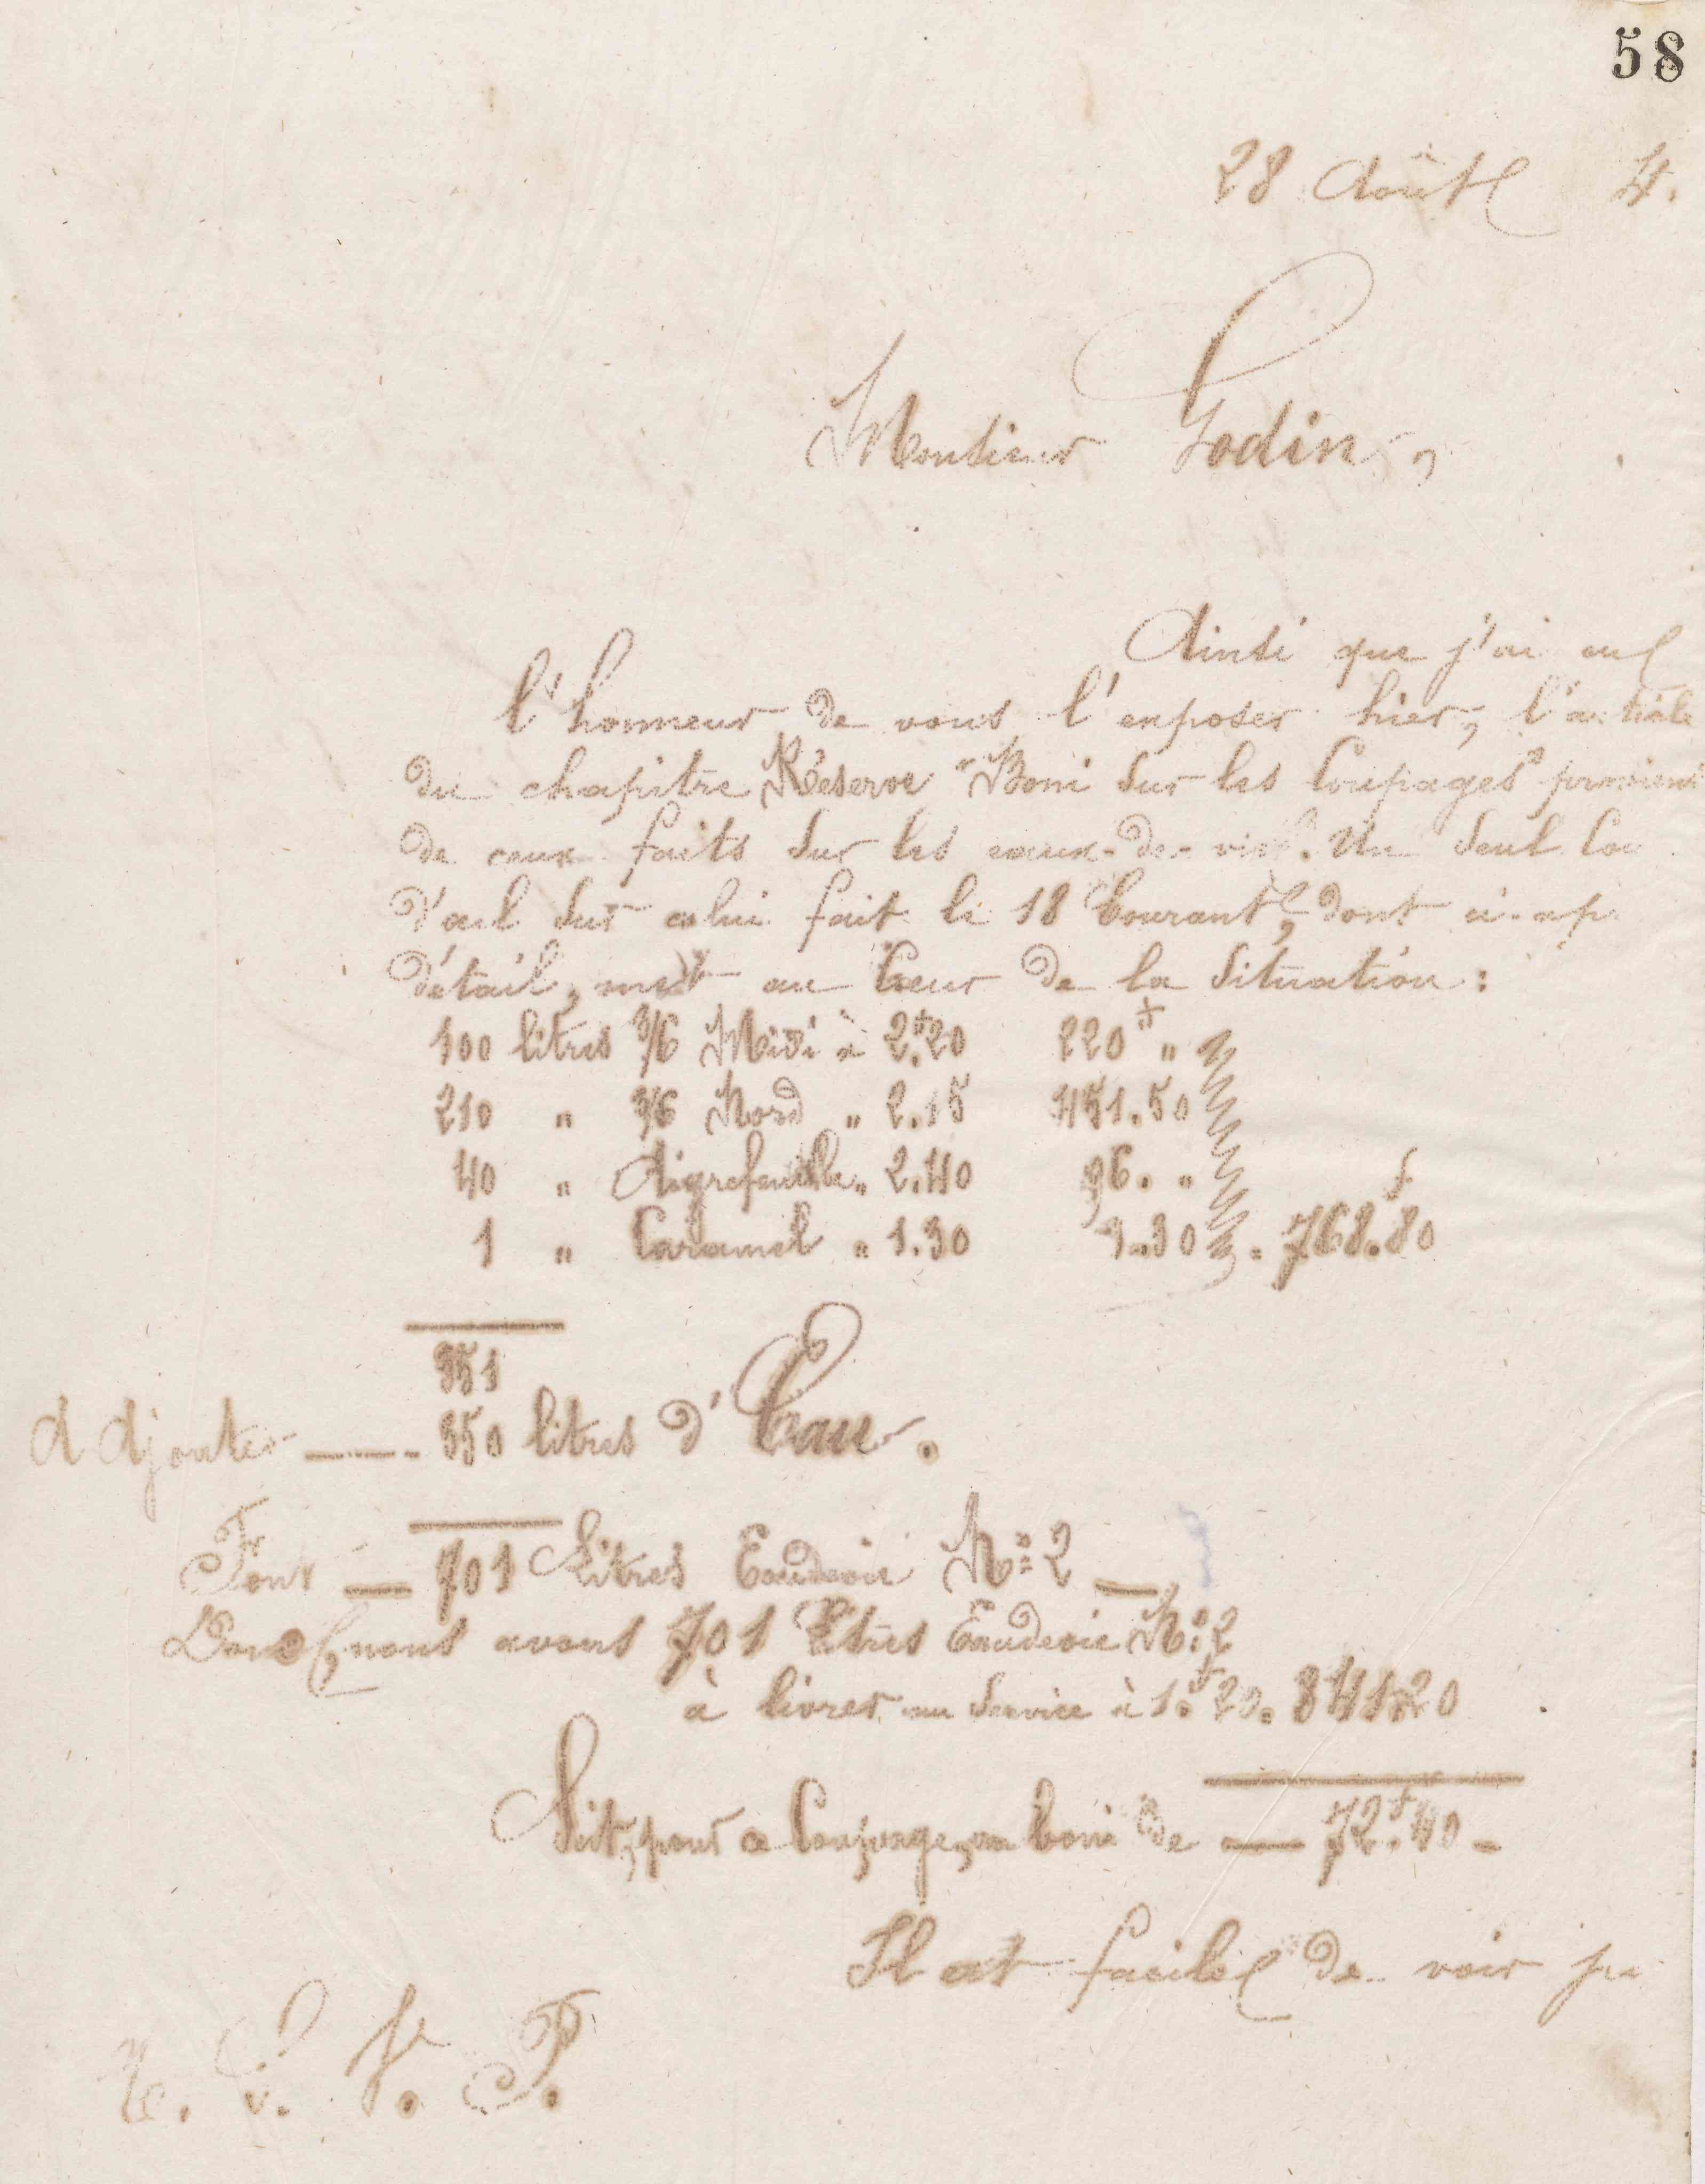 58
28 Août 4.
Monsieur Godin,
Ainsi que j'ai eu
l'honneur de vous l'exposer hier, l'article
du chapitre Réserve "Boni sur les Coupages" provient
de ceux faits sur les eaux-de-vie. Un seul Cou
d'œil sur celui fait le 18 Courant, dont ci-ap
détail, met au Cœur de la situation :
100 litres 3/6 Midi à 2.f20 220f "
210 " 3/6 Nord " 2.15 451.50
40 " Aigrefeuille " 2.40 96. "
1 " Caramel " 1.30 1.30 = 768.f80
351
Adjouter — 350 litres d'Eau.
Font — 701 Litres Eaudevie No 2 —
Donc, nous avons 701 Litres Eaudevie No 2
à livrer au Service à 1.f20 = 841.20
Soit, pour ce Coupage, un boni de — 72.f40 -
Il est facile de voir pa
T.